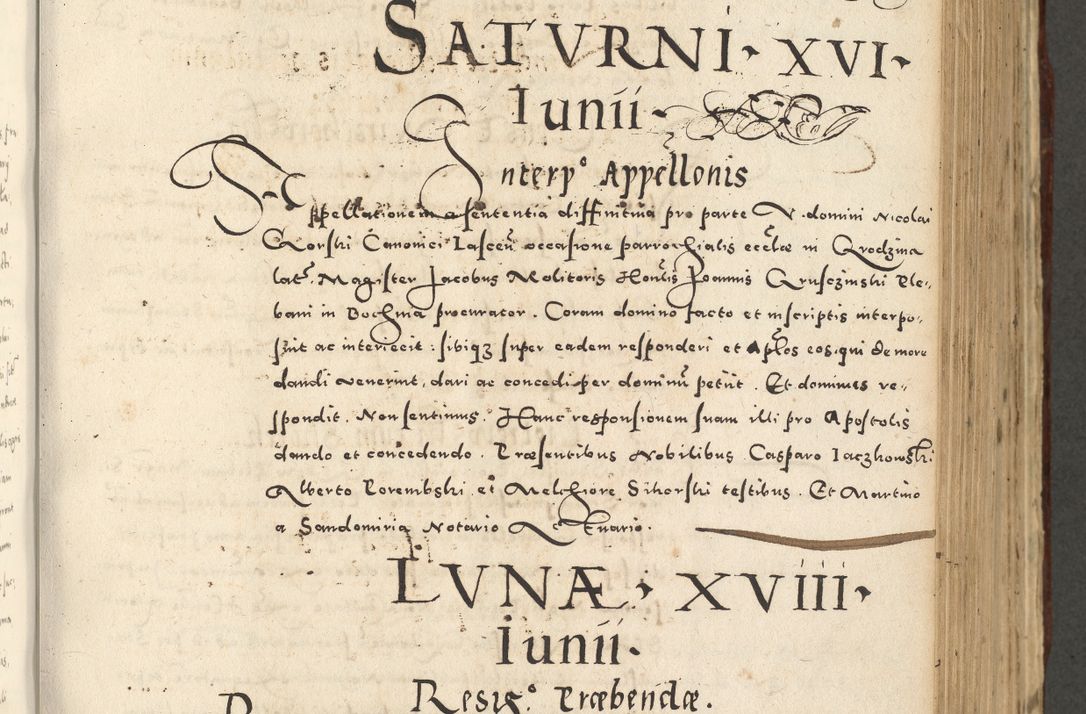 SATVRNI · XVI ·
Iunii ·
Interp° Appellonis
Appellationem a sententia diffinitiua pro parte V. domini Nicolai
Gorski Canonici Lasceñ occasione parrochialis ecctæ in Grodzina
latæ. Magister Jacobus Molitoris Honlis Joannis Grusczinski Ple-
bani in Bochnia procurator. Coram domino facto et in scriptis interpo-
suit ac interiecit: sibiq3 super eadem responderi et Aplos eos, qui de more
dandi venerint, dari ac concedi per dominũ petiit. Et dominus re-
spondit. Non sentimus. Hanc responsionem suam illi pro Apostolis
dando et concedendo. Præsentibus Nobilibus Casparo Iaczkowski
Alberto Porembski et Melchiore Sikorski testibus. Et Martino
a Sandomiria Notario Actuario.
LVNÆ · XVIII ·
Iunii ·
Resig° Præbendæ.